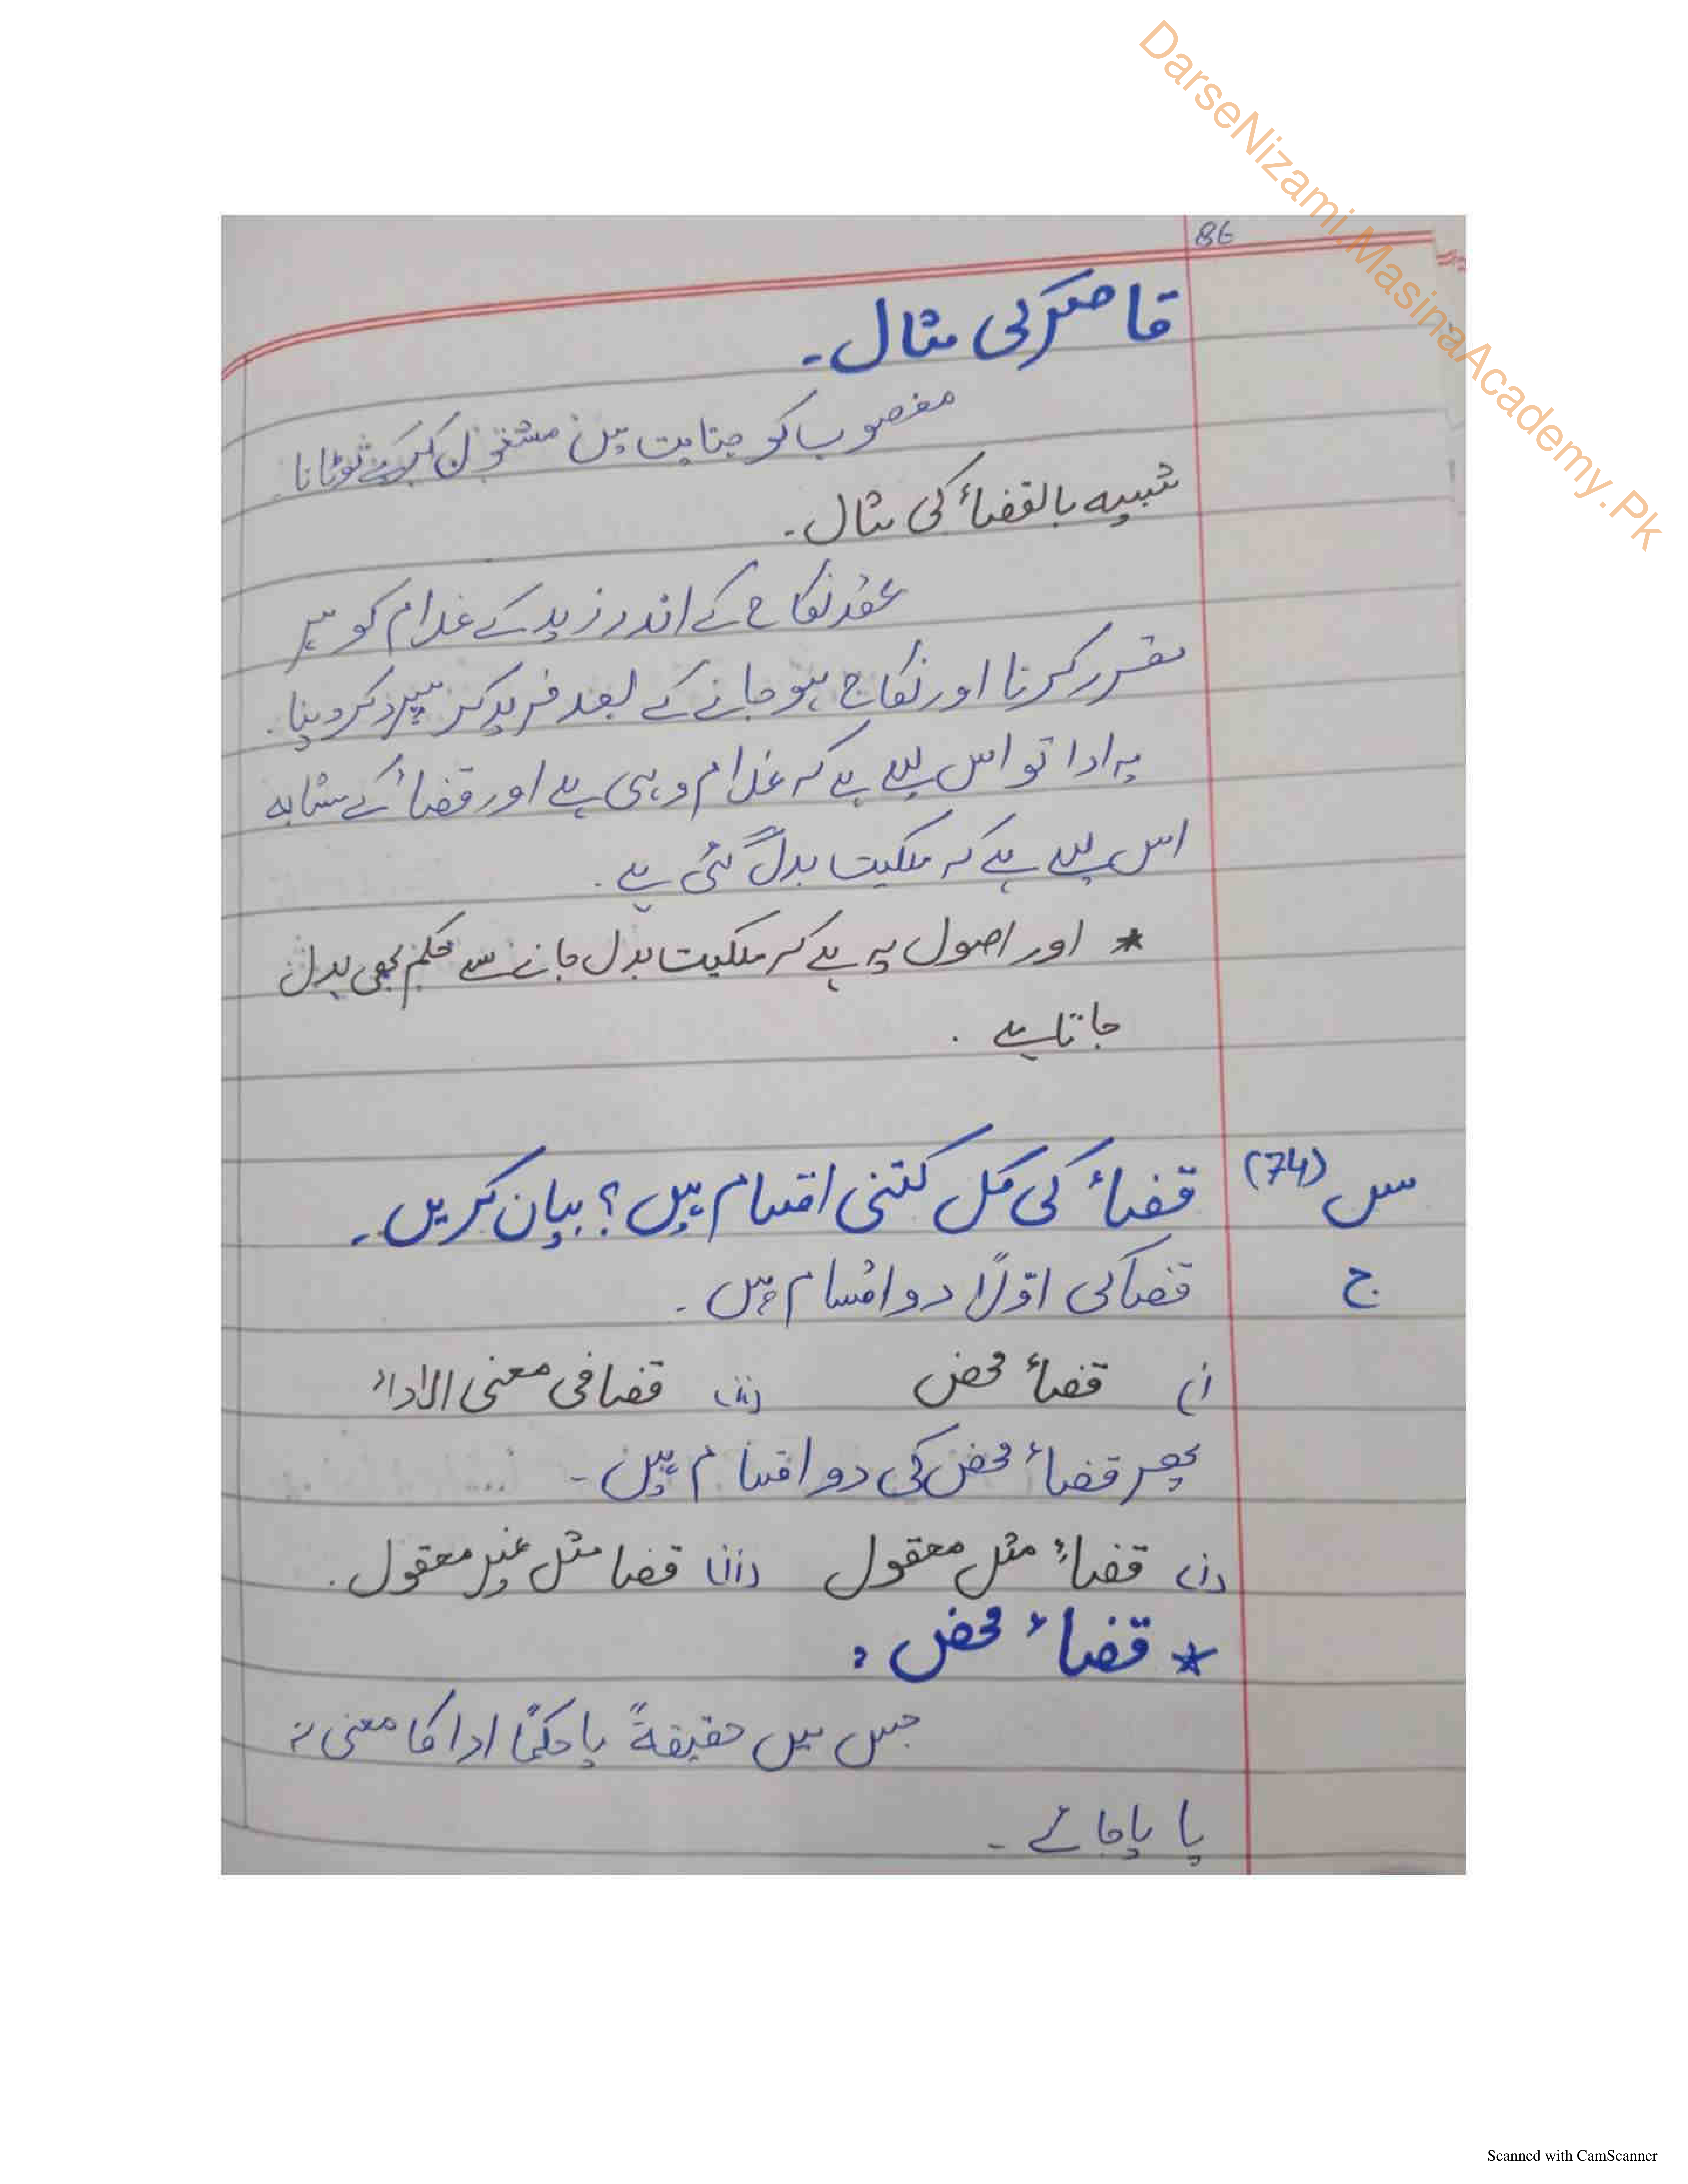 DarseNizami.MasinaAcademy.Pk
86
قاصر کی مثال۔
مغصوب کو جنایت میں مشغول کر کے لوٹانا۔
شبیہ بالقضاء کی مثال۔
عقد نکاح کے اندر زید کے غلام کو مہر
مقرر کرنا اور نکاح ہو جانے کے بعد خرید کر سپرد کر دینا۔
یہ ادا تو اس لیے ہے کہ غلام وہی ہے اور قضاء کے مشابہ
اس لیے ہے کہ ملکیت بدل گئی ہے۔
* اور اصول یہ ہے کہ ملکیت بدل جانے سے حکم بھی بدل
جاتا ہے۔
س (74) قضاء کی کل کتنی اقسام ہیں؟ بیان کریں۔
ج قضا کی اوّلاً دو اقسام ہیں۔
(i) قضاء محض (ii) قضا فی معنی الاداء
پھر قضاء محض کی دو اقسام ہیں۔
(i) قضاءِ مثل معقول (ii) قضا مثل غیر معقول۔
* قضاء محض:
جس میں حقیقۃً یا حکمًا ادا کا معنی نہ
پایا جائے۔
Scanned with CamScanner